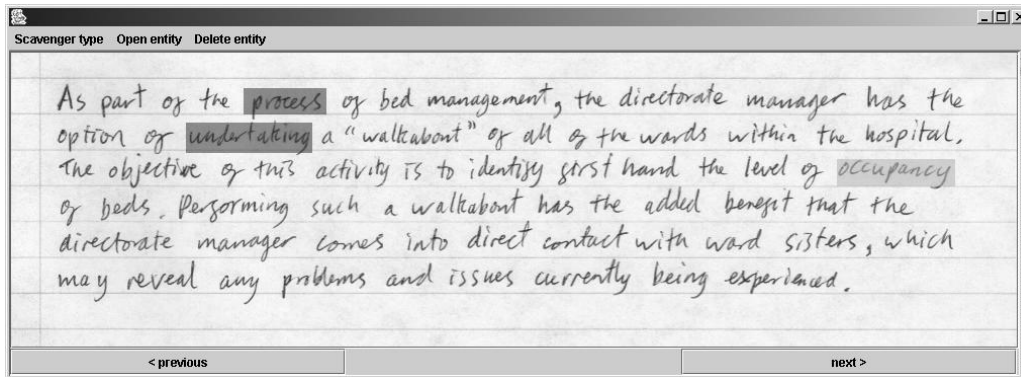 Scavenger type Open entity Delete entity
As part of the process of bed management, the directorate manager has the
option of undertaking a "walkabout" of all of the wards within the hospital.
The objective of this activity is to identify first hand the level of occupancy
of beds. Performing such a walkabout has the added benefit that the
directorate manager comes into direct contact with ward sisters, which
may reveal any problems and issues currently being experienced.
< previous next >